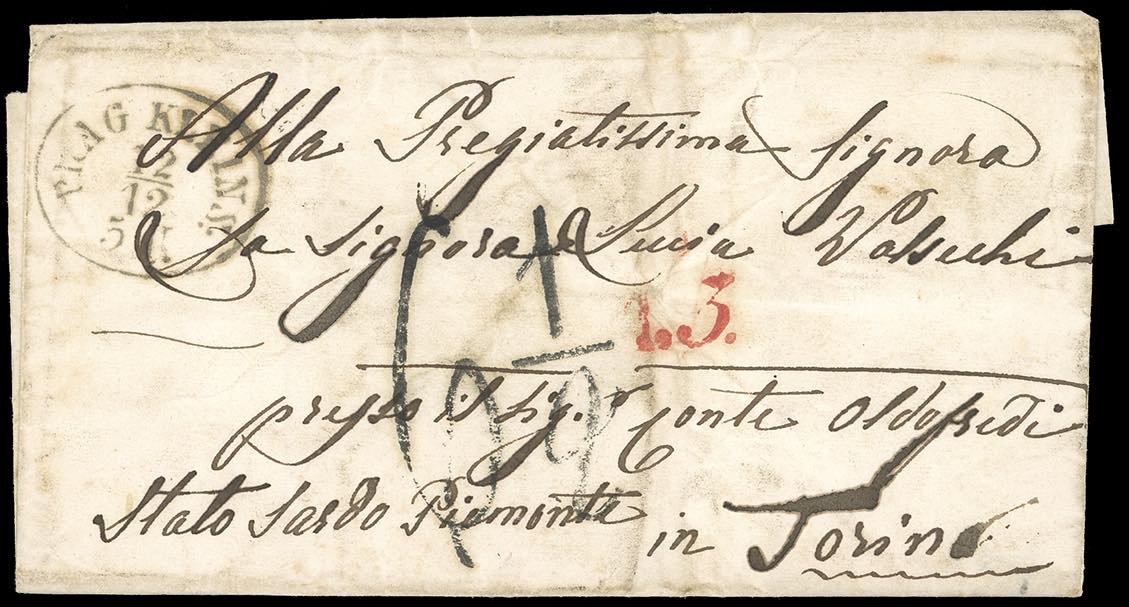 PRAG KLEINS.
12
Alla Pregiatissima Signora
La Signora Lucia Valsecchi
1.3.
presso il Sig.r Conte Oldofredi
Stato Sardo Piemonte in Torino